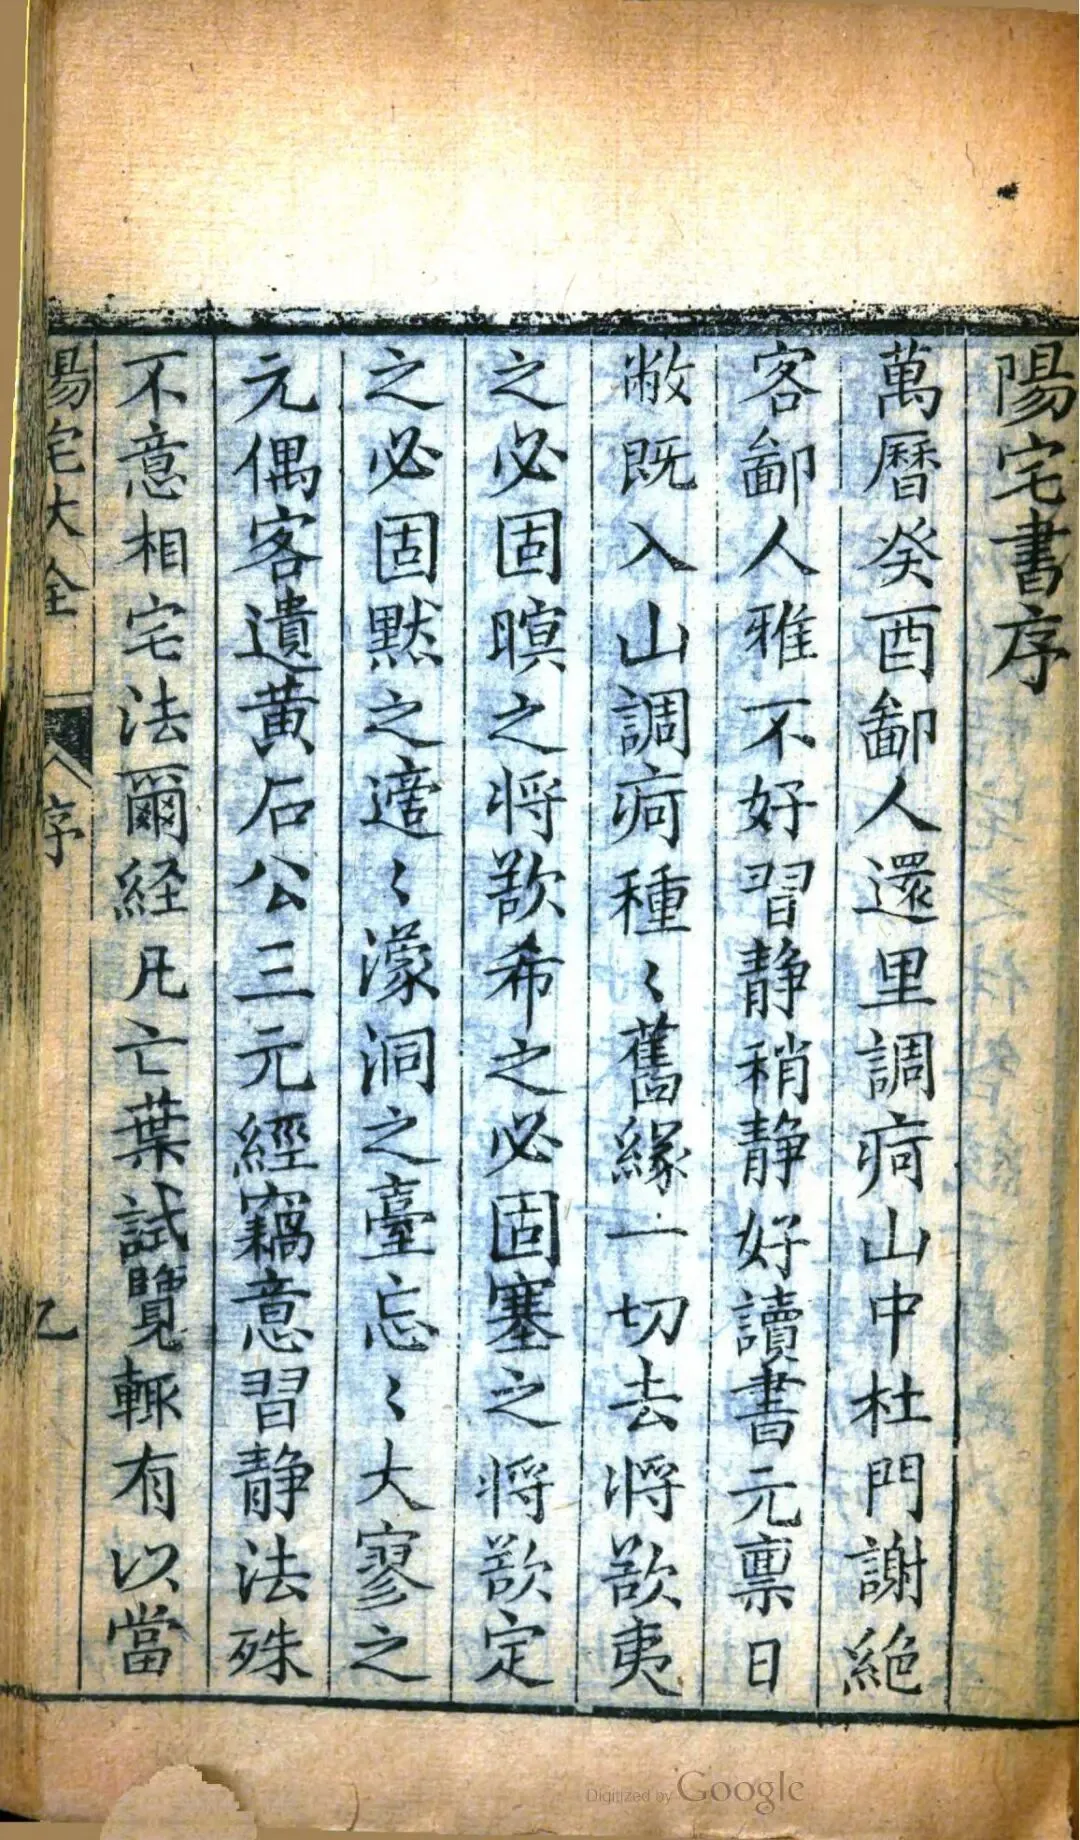 陽宅書序
萬曆癸酉鄙人還里調疴山中杜門謝絕
客鄙人雅不好習静稍静好讀書元禀日
敝既入山調疴種〻舊緣一切去將欲夷
之必固暝之將欲希之必固塞之將欲定
之必固默之適〻濛洞之臺忘〻大寥之
元偶客遺黄石公三元經竊意習静法殊
不意相宅法爾経凡亡葉試覽輙有以當
陽宅大全
序
乙
Digitized by Google